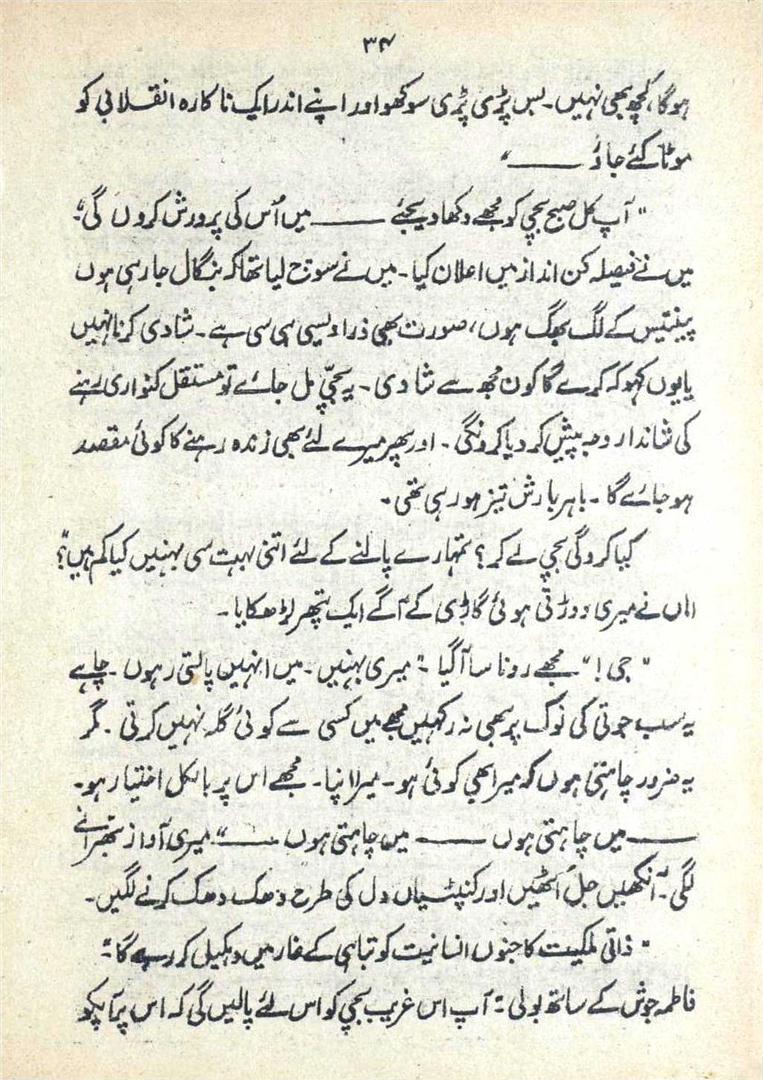 ۳۴
ہوگا، کچھ بھی نہیں۔ بس پڑی پڑی سوکھو اور اپنے اندر ایک ناکارہ انقلابی کو
موٹا کئے جاؤ ———"
"آپ کل صبح بچی کو مجھے دکھا دیجئے ——— میں اُس کی پرورش کروں گی"۔
میں نے فیصلہ کن انداز میں اعلان کیا۔ میں نے سوچ لیا تھا کہ بنگال جا رہی ہوں
پینتیس کے لگ بھگ ہوں، صورت بھی ذرا ویسی ہی سی ہے۔ شادی کرنا نہیں
یا یوں کہو کہ کرے گا کون مجھ سے شادی۔ یہ بچّی مل جائے تو مستقل کنواری رہنے
کی شاندار وجہ پیش کر دیا کرونگی۔ اور پھر میرے لئے بھی زندہ رہنے کا کوئی مقصد
ہو جائے گا۔ باہر بارش تیز ہو رہی تھی۔
کیا کروگی بچی لے کر؟ تمہارے پالنے کے لئے اتنی بہت سی بہنیں کیا کم ہیں؟"
اماں نے میری دوڑتی ہوئی گاڑی کے آگے ایک پتھر لڑھکایا۔
"جی!" مجھے رونا سا آگیا "میری بہنیں۔ میں انہیں پالتی رہوں۔ چاہے
یہ سب جوتی کی نوک پر بھی نہ رکھیں مجھے میں کسی سے کوئی گلہ نہیں کرتی۔ مگر
یہ ضرور چاہتی ہوں کہ میرا بھی کوئی ہو۔ میرا اپنا۔ مجھے اس پر بالکل اختیار ہو۔
——— میں چاہتی ہوں ——— میں چاہتی ہوں ———" میری آواز بھرانے
لگی۔ آنکھیں جل اُٹھیں اور کنپٹیاں دل کی طرح دھک دھک کرنے لگیں۔
"ذاتی ملکیت کا جنوں انسانیت کو تباہی کے غار میں دھکیل کر رہے گا"۔
فاطمہ جوش کے ساتھ بولی "آپ اس غریب بچی کو اس لئے پالیں گی کہ اس پر آپکو